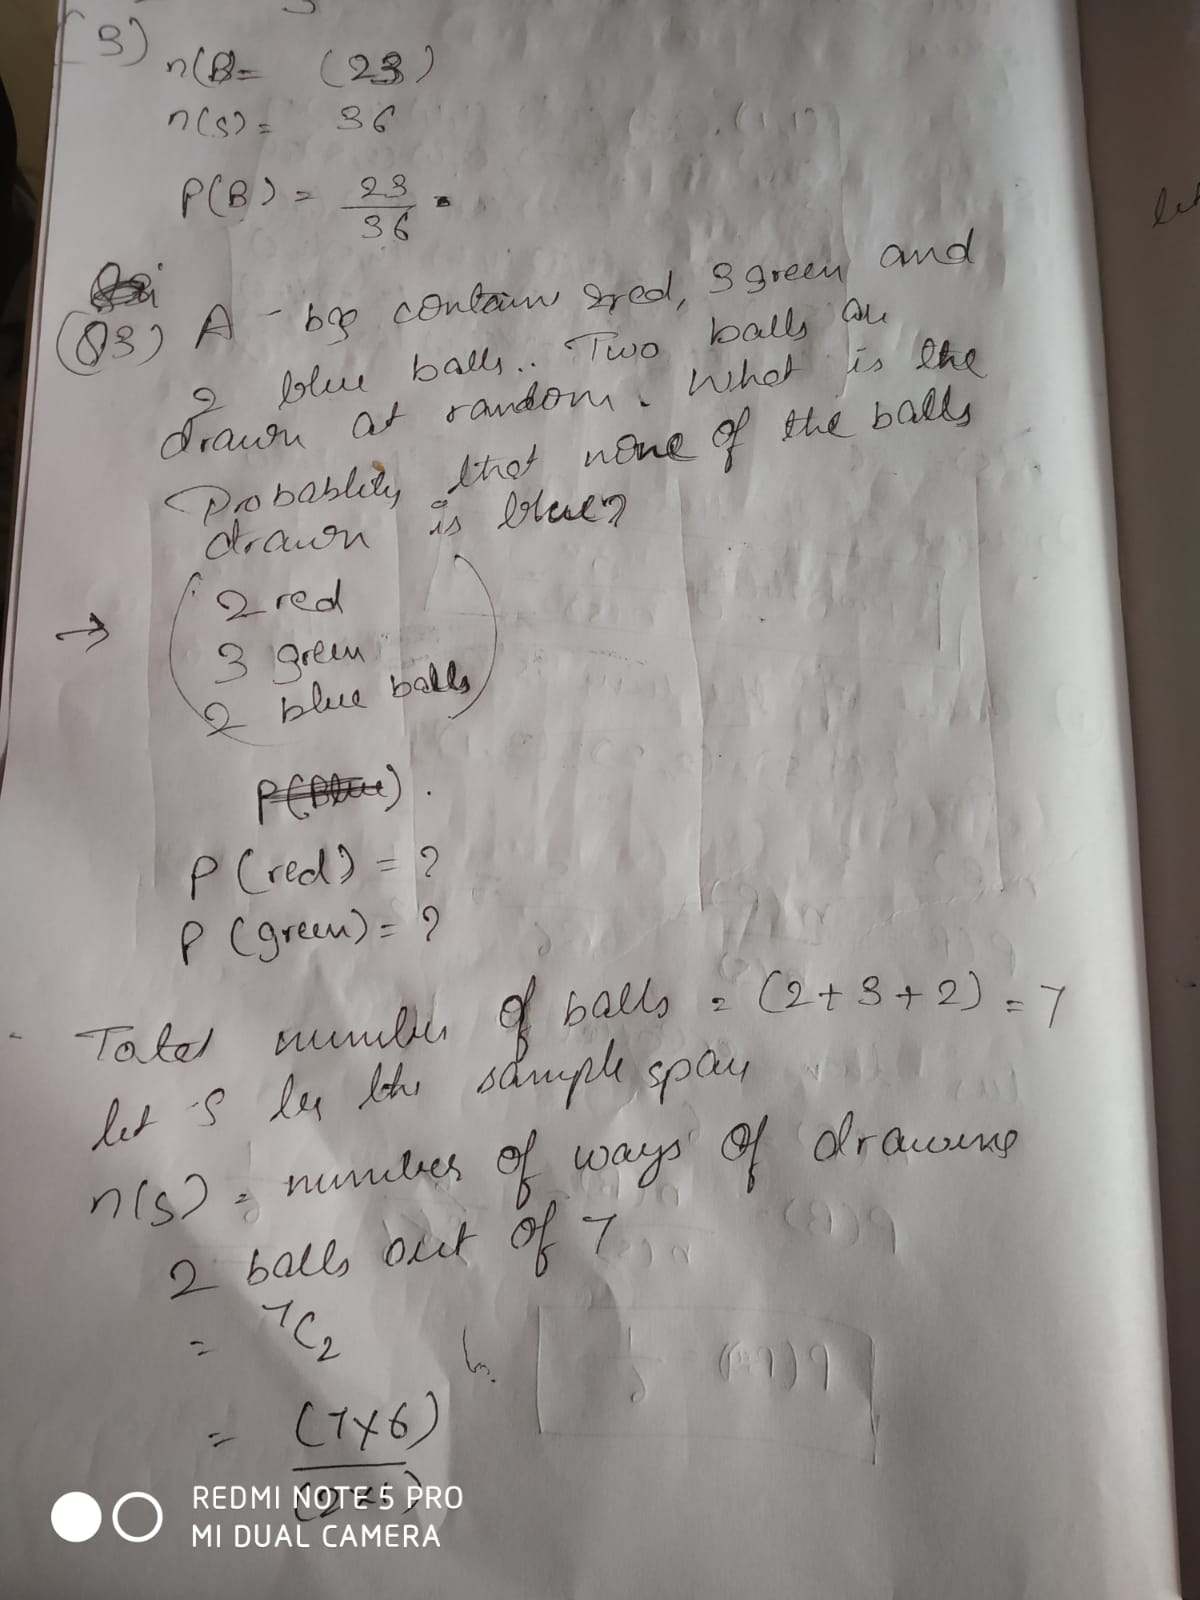 (3)
n(B = (23)
n(S) = 36
P(B) = 23/36
(Q3) A bag contain 2red, 3 green and
2 blue balls.. Two balls are
drawn at random. What is the
Probablity that none of the balls
drawn is blue?
→ 2 red
3 green
2 blue balls
P(Blue).
P(red) = ?
P(green) = ?
Total number of balls = (2+3+2) = 7
let S be the sample space
n(S) = number of ways of drawing
2 balls out of 7
= 7C2
= (7x6)
(2x1)
REDMI NOTE 5 PRO
MI DUAL CAMERA